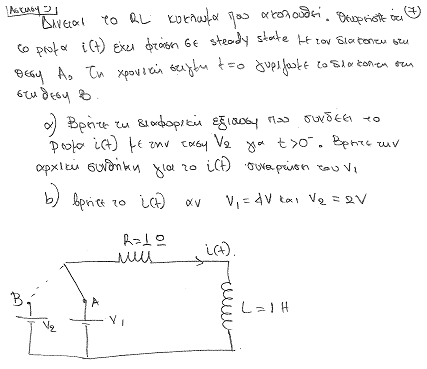 Άσκηση 5
Δίνεται το RL κύκλωμα που ακολουθεί. Θεωρήστε ότι (7)
το ρεύμα i(t) έχει φτάση σε steady state με τον διακόπτη στη
θέση A. Τη χρονική στιγμή t=0 γυρίζουμε το διακόπτη στη
στη θέση B.
a) Βρήτε τη διαφορική εξίσωση που συνδέει το
ρεύμα i(t) με την τάση V2 για t>0⁻. Βρήτε την
αρχική συνθήκη για το i(t) συναρτήση του V1
b) βρήτε το i(t) αν V1=4V και V2=2V
R=1Ω
i(t)
B
A
V2
V1
L=1H